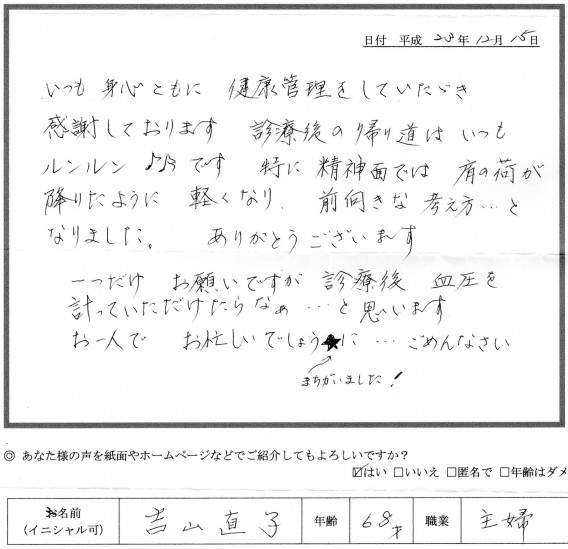 日付 平成 23年 12月 15日
いつも 身心ともに 健康管理をしていただき
感謝しております 診療後の帰り道は いつも
ルンルン ♪♪♪です 特に 精神面では 肩の荷が
降りたように 軽くなり、 前向きな 考え方…と
なりました。 ありがとうございます
一つだけ お願いですが 診療後 血圧を
計っていただけたらなぁ …と 思います
お一人で お忙しいでしょう★に … ごめんなさい
まちがいました!
◎ あなた様の声を紙面やホームページなどでご紹介してもよろしいですか?
☑はい □いいえ □匿名で □年齢はダメ
お名前 (イニシャル可) 吉山直子 年齢 68才 職業 主婦